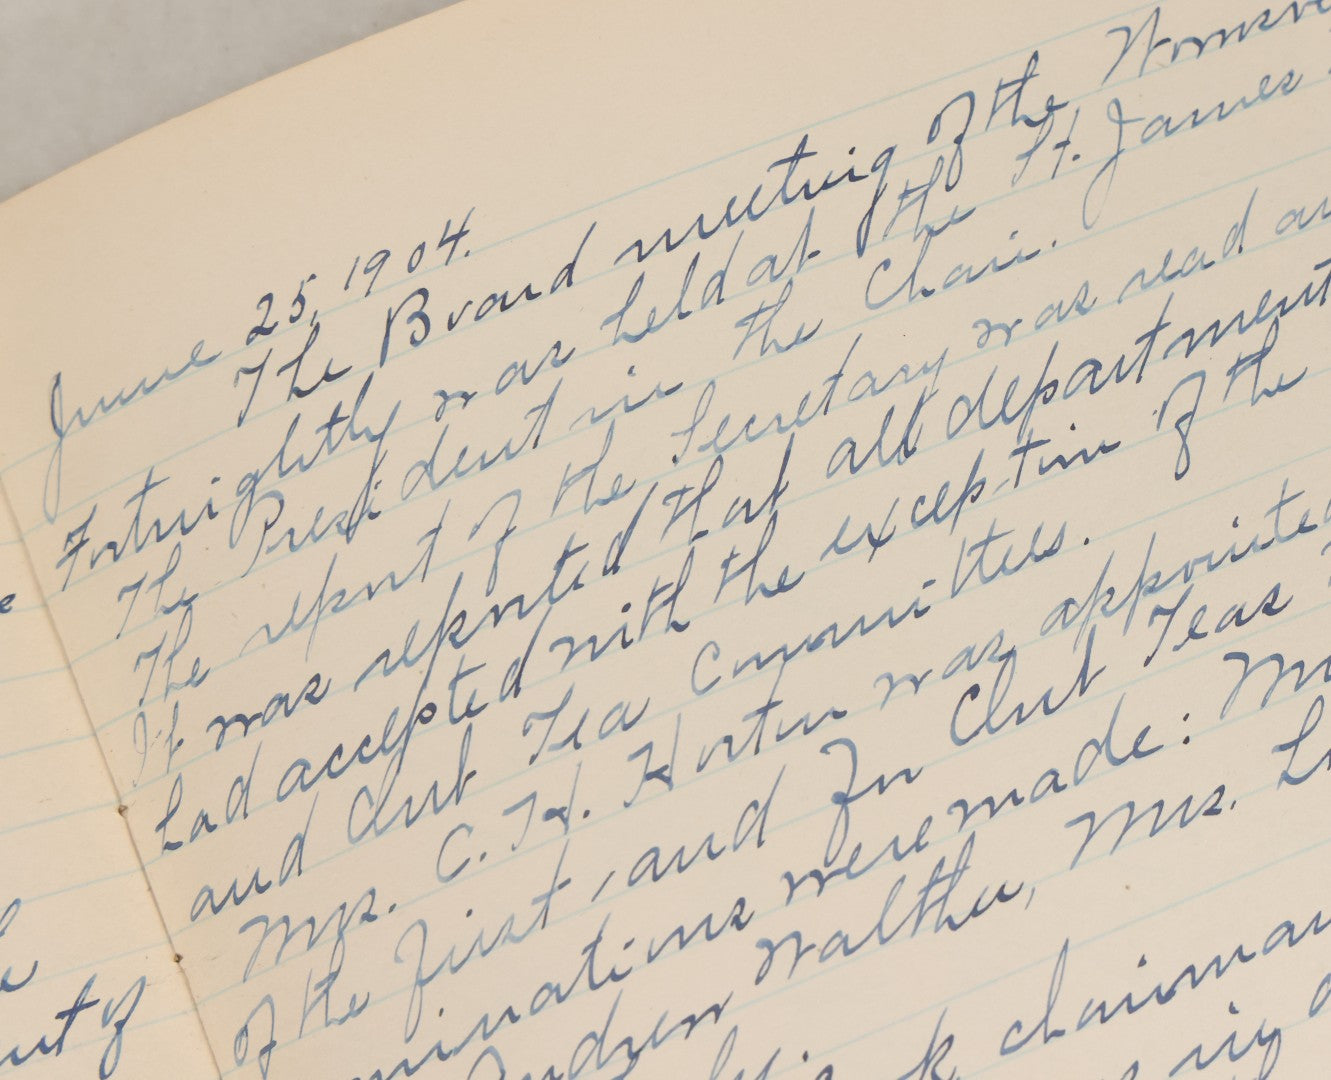 June 25, 1904.
The Board meeting of the
Fortnightly was held at the St. James
The President in the Chair.
The report of the Secretary was read
It was reported that all department
had accepted with the exception of the
and Club Tea Committees.
Mrs. C. H. Horton was appointed
of the first, and for Club Teas
were made:
Andrew Walther, Mrs.
chairman
in
of